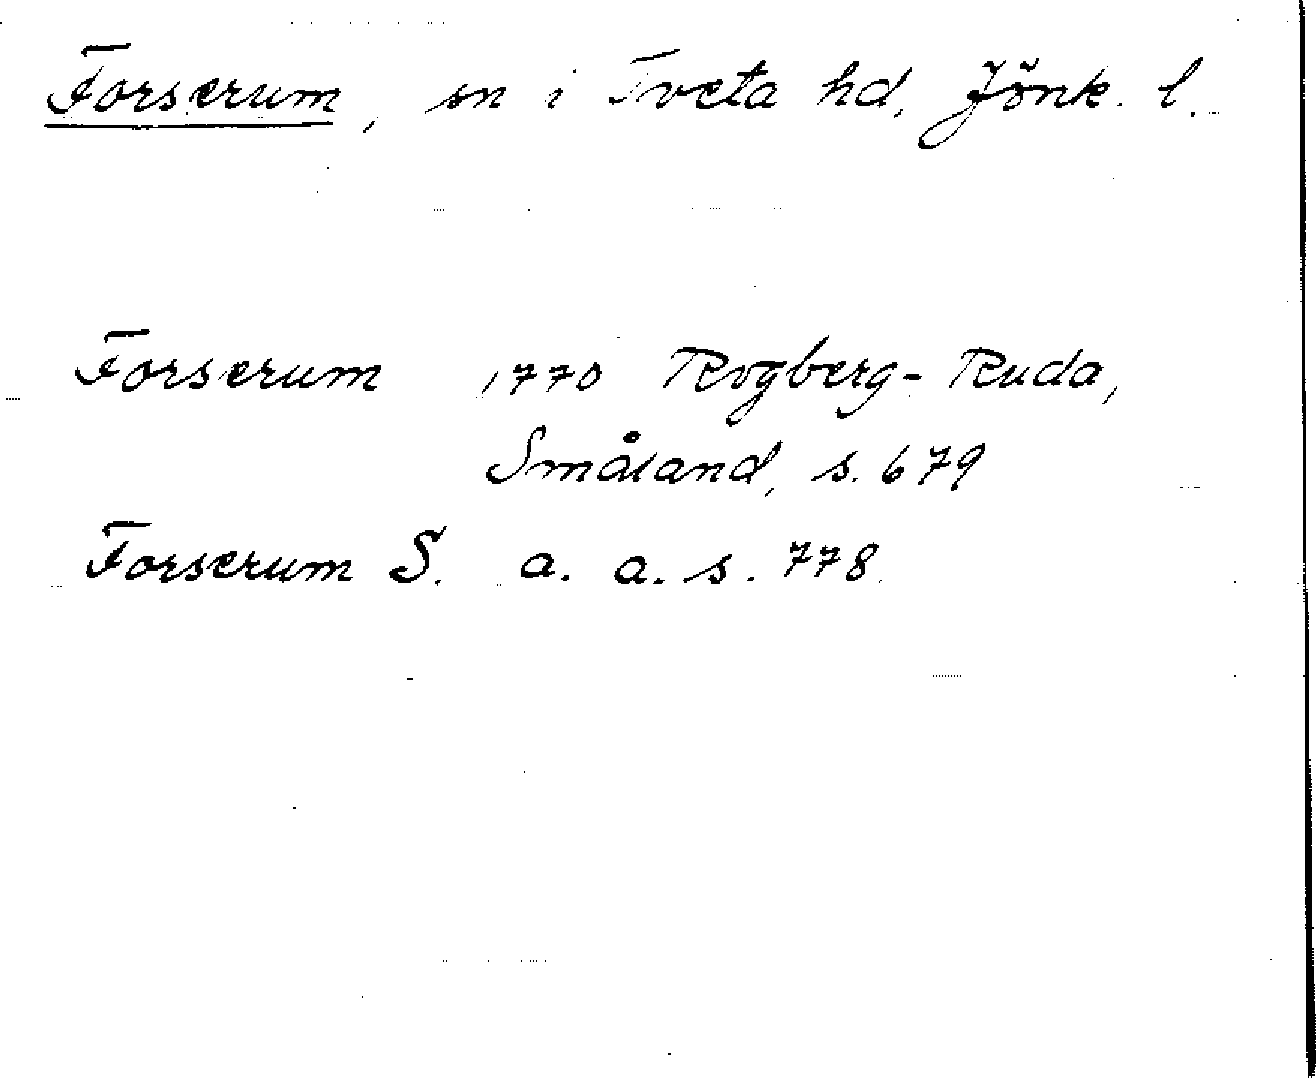 Forserum, sn i Tveta hd, Jönk. l.
Forserum 1770 Rogberg-Ruda,
Småland, s. 679
Forserum S. a. a. s. 778